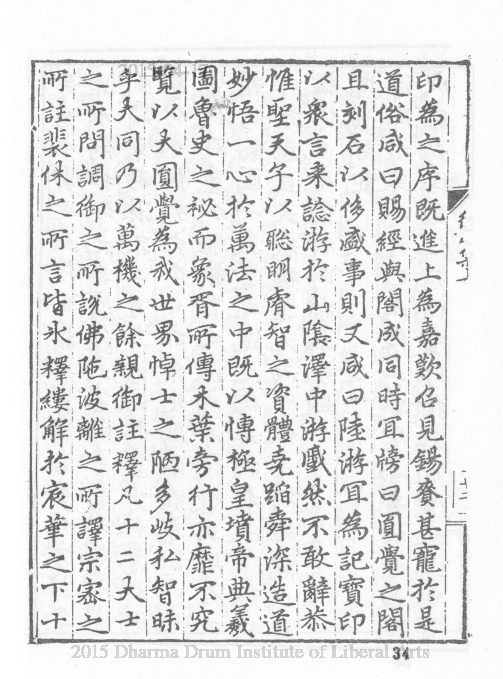 印為之序既進上為嘉歎召見錫賚甚寵於是
道俗咸曰賜經與閣成同時宜牓曰圓覺之閣
且刻石以侈盛事則又咸曰陸游宜為記寶印
以衆言来諗游於山陰澤中游戲然不敢辭恭
惟聖天子以聡明睿智之資體堯蹈舜深造道
妙悟一心於萬法之中既以博極皇墳帝典羲
圖魯史之祕而象胥所傳木葉旁行亦靡不究
覽以大圓覺為我世界悼士之陋多歧私智昧
乎大同乃以萬機之餘親御註釋凡十二大士
之所問調御之所說佛陁波離之所譯宗密之
所註裴休之所言皆氷釋縷解於宸華之下十
34
2015 Dharma Drum Institute of Liberal Arts